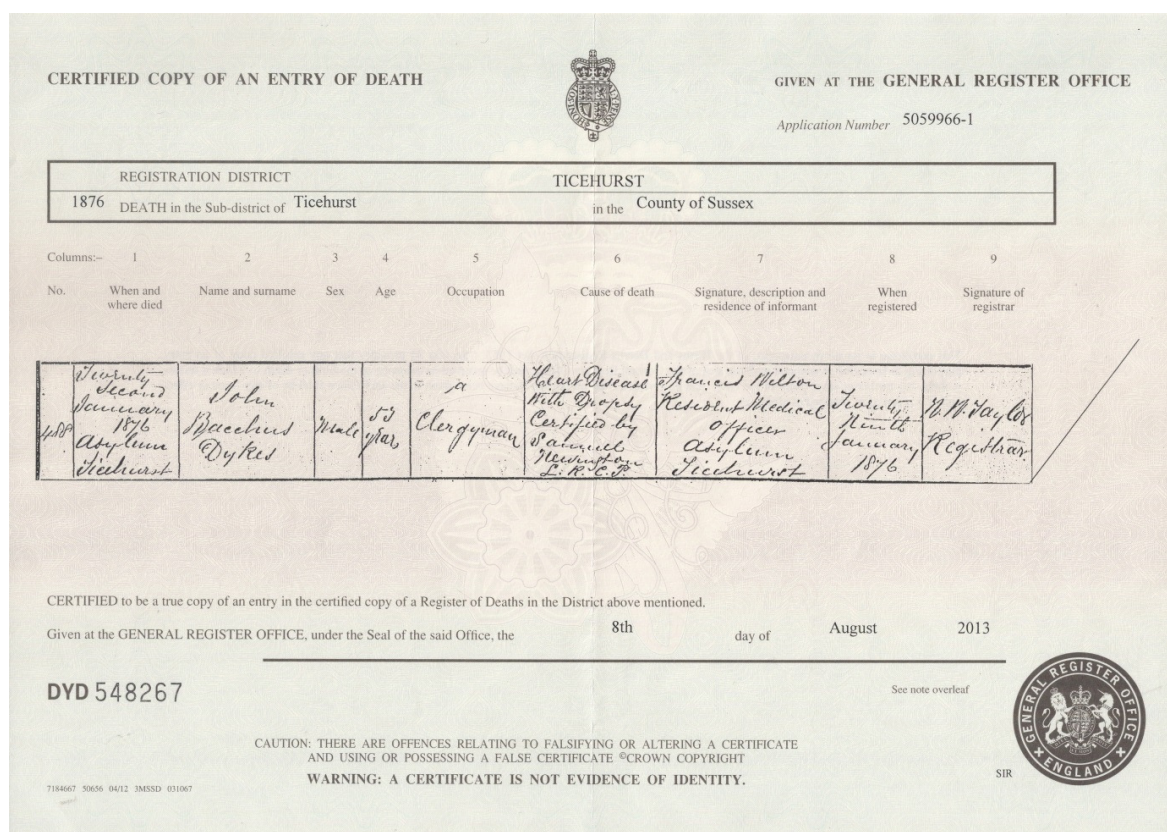 CERTIFIED COPY OF AN ENTRY OF DEATH
GIVEN AT THE GENERAL REGISTER OFFICE
Application Number 5059966-1
REGISTRATION DISTRICT TICEHURST
1876 DEATH in the Sub-district of Ticehurst in the County of Sussex
Columns:– 1 2 3 4 5 6 7 8 9
No. When and where died Name and surname Sex Age Occupation Cause of death Signature, description and residence of informant When registered Signature of registrar
488
Twenty
Second
January
1876
Asylum
Ticehurst
John
Bacchus
Dykes
Male
53
years
a
Clergyman
Heart Disease
With Dropsy
Certified by
Samuel
Newington
L.R.C.P.
Francis Wilton
Resident Medical
officer
Asylum
Ticehurst
Twenty
Ninth
January
1876
Taylor
Registrar
CERTIFIED to be a true copy of an entry in the certified copy of a Register of Deaths in the District above mentioned.
Given at the GENERAL REGISTER OFFICE, under the Seal of the said Office, the 8th day of August 2013
DYD 548267
See note overleaf
CAUTION: THERE ARE OFFENCES RELATING TO FALSIFYING OR ALTERING A CERTIFICATE
AND USING OR POSSESSING A FALSE CERTIFICATE ©CROWN COPYRIGHT
WARNING: A CERTIFICATE IS NOT EVIDENCE OF IDENTITY.
7184667 50656 04/12 3MSSD 031067
SIR
GENERAL REGISTER OFFICE
ENGLAND